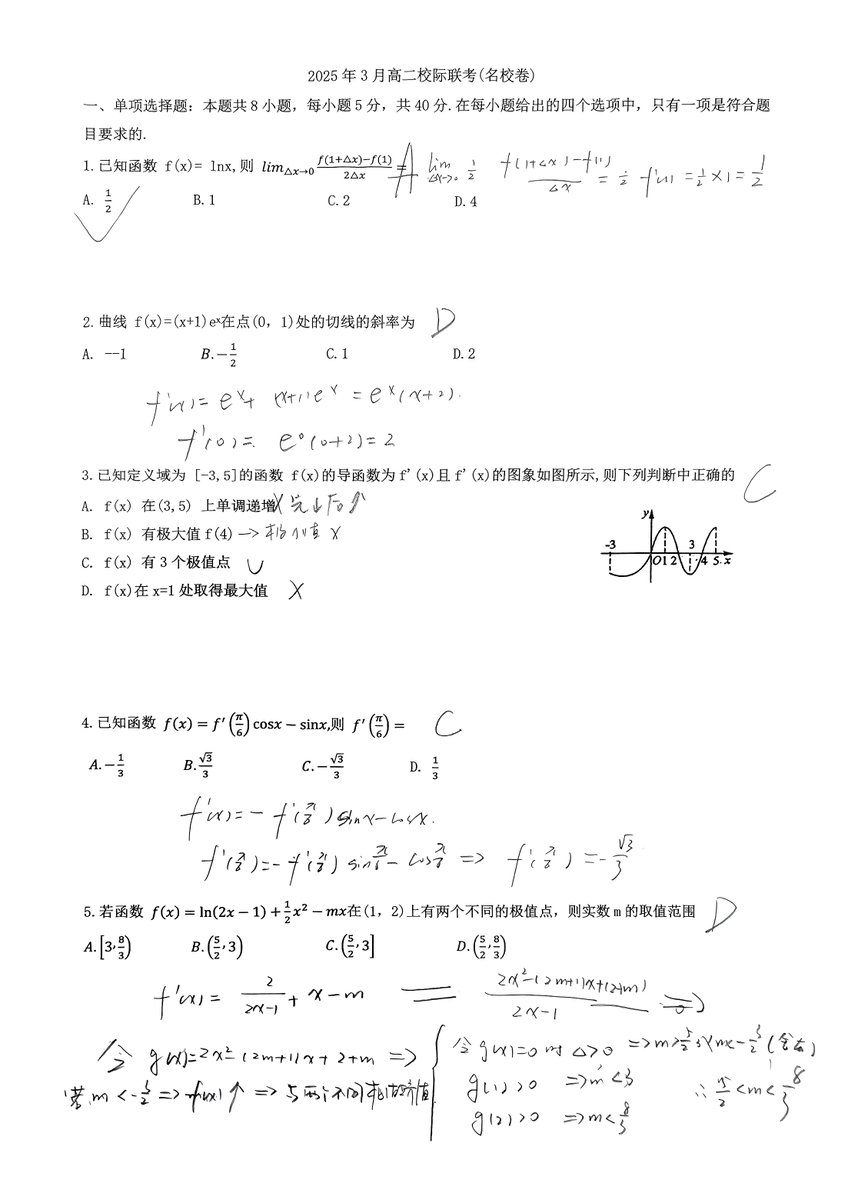 2025 年 3 月高二校际联考(名校卷)
一、单项选择题: 本题共 8 小题, 每小题 5 分, 共 40 分.在每小题给出的四个选项中, 只有一项是符合题
目要求的.
1.已知函数 f(x)= lnx,则 lim△x→0 f(1+△x)−f(1)/2△x = A lim △x→0 1/2 f(1+△x)−f(1)/△x = 1/2 f'(1) = 1/2×1 = 1/2
A. 1/2 B.1 C.2 D.4
2.曲线 f(x)=(x+1)eˣ在点(0, 1)处的切线的斜率为 D
A. --1 B.−1/2 C.1 D.2
f'(x)= eˣ+ (x+1)eˣ = eˣ(x+2).
f'(0)= e⁰(0+2)= 2
3.已知定义域为 [-3,5]的函数 f(x)的导函数为 f'(x)且 f'(x)的图象如图所示,则下列判断中正确的 C
A. f(x) 在(3,5) 上单调递增 X 先↓后↑
B. f(x) 有极大值 f(4) → 极小值 X
C. f(x) 有 3 个极值点
D. f(x)在 x=1 处取得最大值 X
y -3 3 O 1 2 4 5 x
4.已知函数 f(x) = f′(π/6) cosx − sinx,则 f′(π/6) = C
A.−1/3 B.√3/3 C.−√3/3 D. 1/3
f'(x)= − f'(π/6) sinx − cosx.
f'(π/6)= − f'(π/6) sinπ/6 − cosπ/6 => f'(π/6) = −√3/3
5.若函数 f(x) = ln(2x − 1) + 1/2 x² − mx在(1, 2)上有两个不同的极值点, 则实数 m 的取值范围 D
A.[3,8/3) B.(5/2,3) C.(5/2,3] D.(5/2,8/3)
f'(x) = 2/2x−1 + x−m = 2x²−(2m+1)x+(2+m)/2x−1
令 g(x)=2x²−(2m+1)x+2+m => { 令g(x)=0 时 △>0 => m>5/2 或 m<−3/2 (舍去)
若 m<−3/2 => f(x)↑ => 与两个不同极值 g(1)>0 => m<3 ∴ 5/2<m<8/3
g(2)>0 => m<8/3